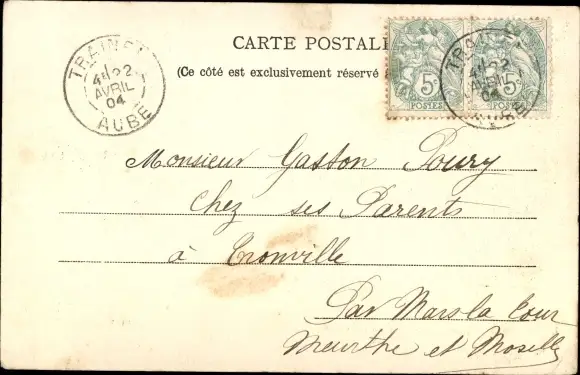 CARTE POSTALE
(Ce côté est exclusivement réservé
TRAINEL
4E 22
AVRIL
04
AUBE
5 5
POSTES POSTES
TRAINEL
22
AVRIL
04
AUBE
Monsieur Gaston Poury
Chez ses Parents
à Tronville
Par Mars la Tour
Meurthe et Moselle